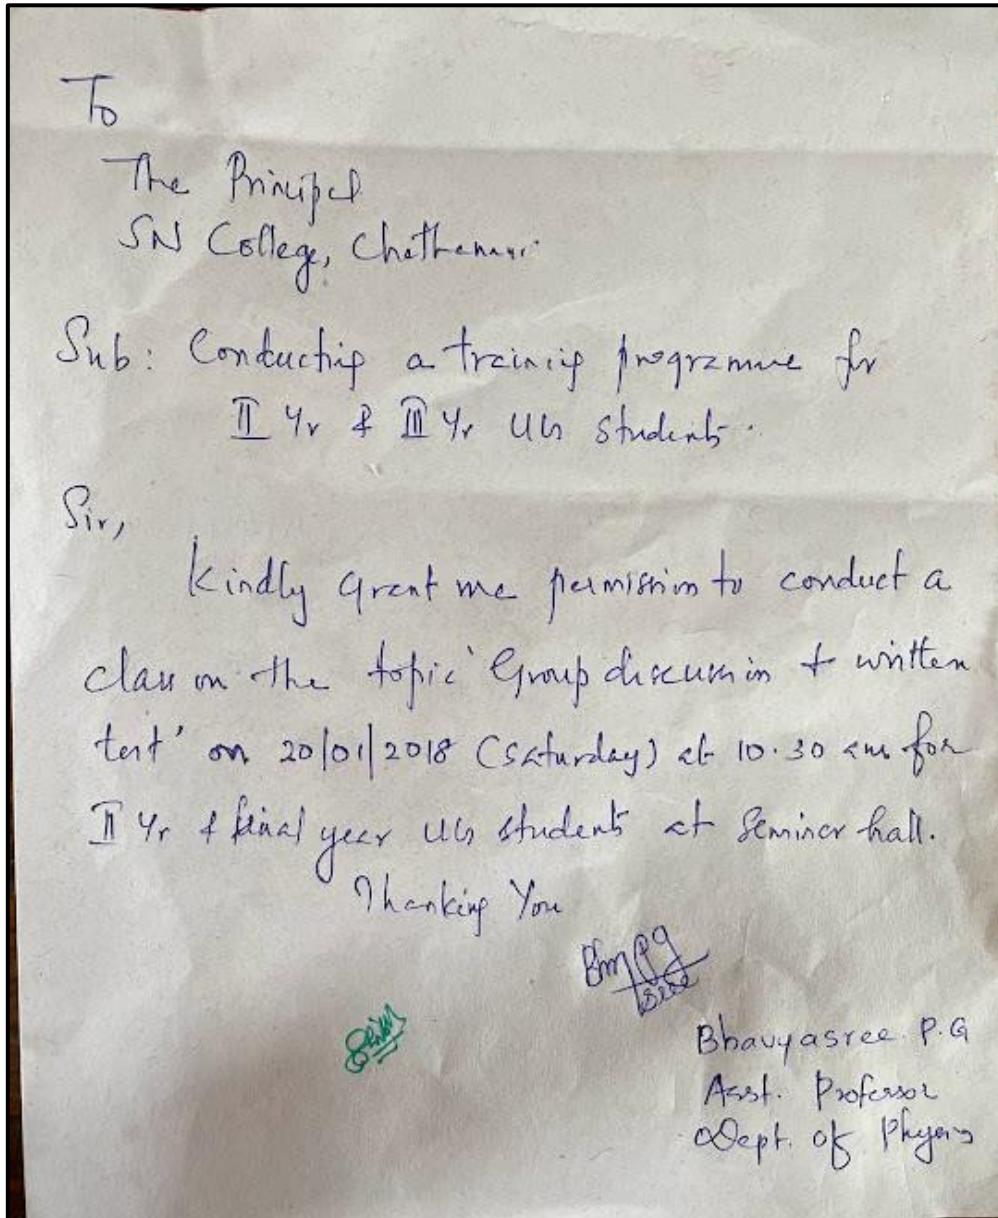 To
The Principal
SN College, Chathannur
Sub: Conducting a training programme for
II Yr & III Yr UG students.
Sir,
Kindly grant me permission to conduct a
class on the topic 'Group discussion & written
test' on 20/01/2018 (Saturday) at 10.30 am for
II Yr & final year UG students at Seminar hall.
Thanking You
Bhavyasree P.G
Asst. Professor
Dept. of Physics